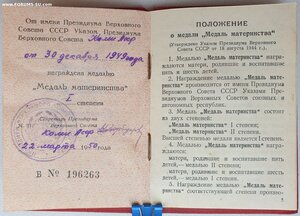 FORUMS-SU.com
От имени Президиума Верховного
Совета СССР Указом Президиума
Верховного Совета Коми Асср
от 30 декабря 1949 года
награждена медалью
„Медаль материнства“
I степени
Секретарь Президиума
Верховного Совета
Коми Асср
22 марта 1950 года
В № 196263
ПОЛОЖЕНИЕ
о медали „Медаль материнства“
(Утверждено Указом Президиума Верховного
Совета СССР от 18 августа 1944 г.)
1. „Медалью материнства“ награждаются
матери, родившие и воспитавшие
пять и шесть детей.
2. Награждение медалью „Медаль материнства“
производится от имени Президиума
Верховного Совета СССР Указами Президиумов
Верховных Советов союзных и
автономных республик.
3. „Медаль материнства“ состоит из двух
степеней:
„Медаль материнства“ I степени,
„Медаль материнства“ II степени.
Высшей степенью медали является I степень.
4. Медалью материнства награждаются
матери:
родившие и воспитавшие пять детей —
медалью II степени;
матери, родившие и воспитавшие шесть
детей, — медалью I степени.
5. Награждение медалью „Медаль материнства“
соответствующей степени производится
3